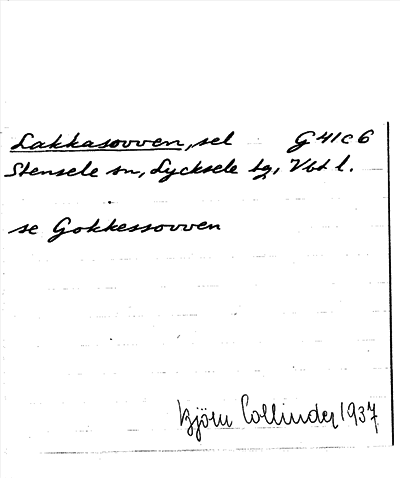 Lakkasovven, sel G 41 c 6
Stensele sn, Lycksele tg, Vbt l.
se Gokkessovven
Björn Collinder 1937